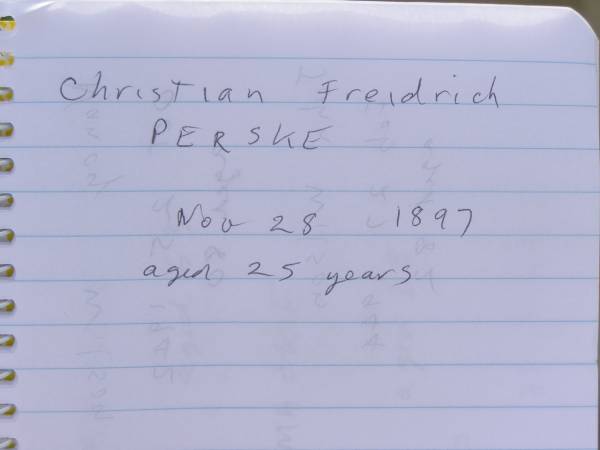 Christian Freidrich
PERSKE
Nov 28 1897
aged 25 years